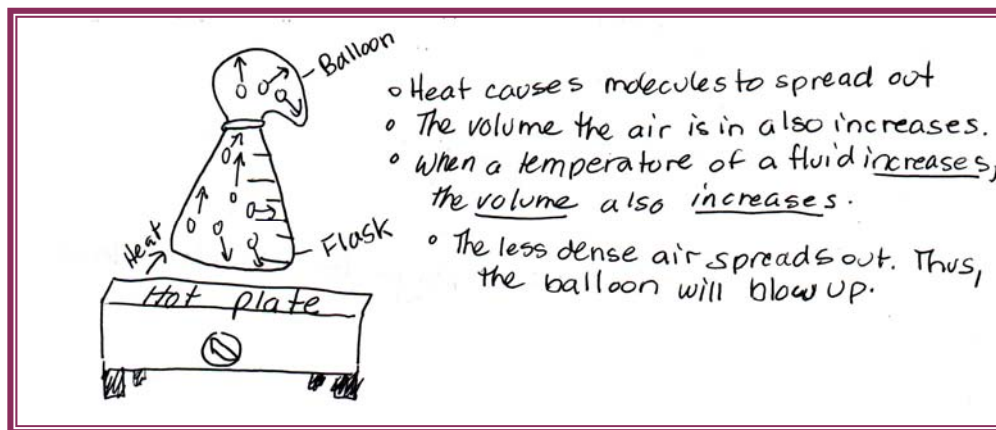 Balloon
Heat causes molecules to spread out
The volume the air is in also increases.
when a temperature of a fluid increases,
the volume also increases.
The less dense air spreads out. Thus,
the balloon will blow up.
Flask
Heat
Hot plate